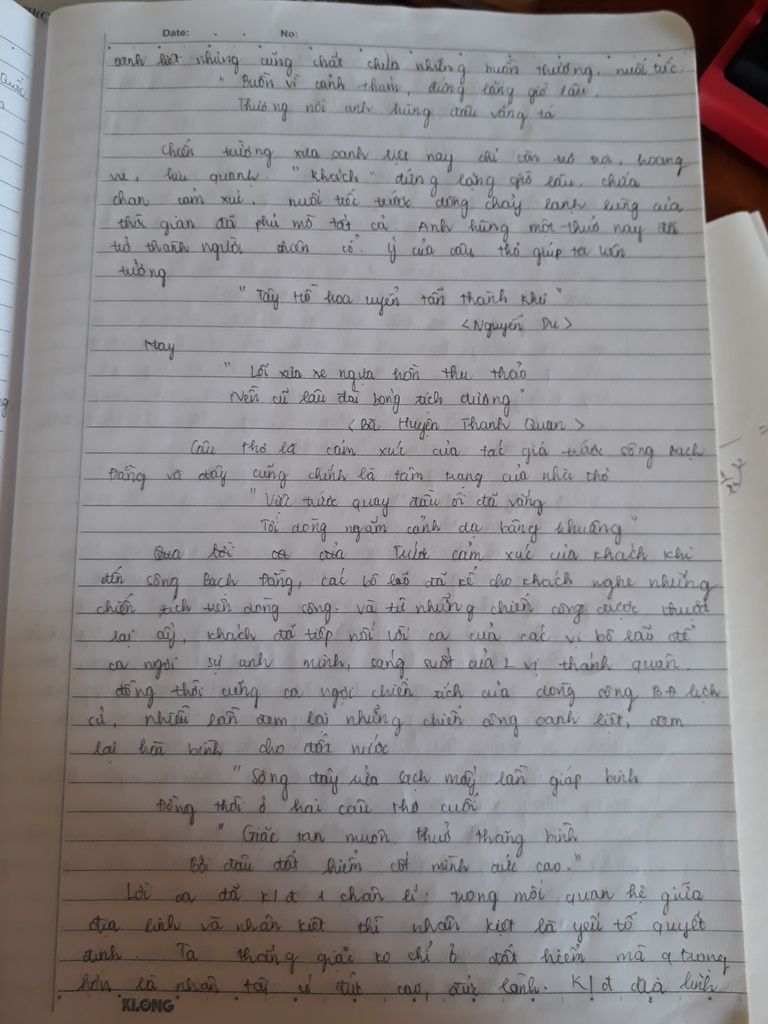 Date: . . No:
oanh liệt nhưng cũng chất chứa những buồn thương, nuối tiếc
" Buồn vì cảnh thảm, đứng lặng giờ lâu.
Thương nỗi anh hùng đâu vắng tá
Chiến trường xưa oanh liệt nay chỉ còn trơ trọi, hoang
vu, hiu quạnh. "Khách" đứng lặng giờ lâu, chứa
chan cảm xúc, nuối tiếc trước dòng chảy lạnh lùng của
thời gian đã phủ mờ tất cả. Anh hùng một thuở nay đã
trở thành người thiên cổ. Ý của câu thơ giúp ta liên
tưởng
" Tây Hồ hoa uyển tẫn thành khư "
<Nguyễn Du>
Hay
" Lối xưa xe ngựa hồn thu thảo
Nền cũ lâu đài bóng tịch dương"
<Bà Huyện Thanh Quan>
Câu thơ là cảm xúc của tác giả trước sông Bạch
Đằng và đây cũng chính là tâm trạng của nhà thơ
" Vực nước quay đầu ôi đã vắng
Tới dòng ngắm cảnh dạ bâng khuâng"
Trước cảm xúc của khách khi
đến sông Bạch Đằng, các bô lão đã kể cho khách nghe những
chiến tích trên dòng sông. và từ những chiến công được thuật
lại ấy, khách đã tiếp nối lời ca của các vị bô lão để
ca ngợi sự anh minh, sáng suốt của 2 vị thánh quân.
đồng thời cũng ca ngợi chiến tích của dòng sông BĐ lịch
sử, nhiều lần đem lại những chiến công oanh liệt, đem
lại hòa bình cho đất nước
" Sông đây rửa sạch mấy lần giáp binh
Đồng thời ở hai câu thơ cuối
" Giặc tan muôn thuở thăng bình
Bởi đâu đất hiểm cốt mình đức cao."
Lời ca đã k/đ 1 chân lí: trong mối quan hệ giữa
địa linh và nhân kiệt thì nhân kiệt là yếu tố quyết
định. Ta thắng giặc ko chỉ ở đất hiểm mà q trọng
hơn là nhân tài có đức cao, đức lành. K/đ địa linh
KLONG